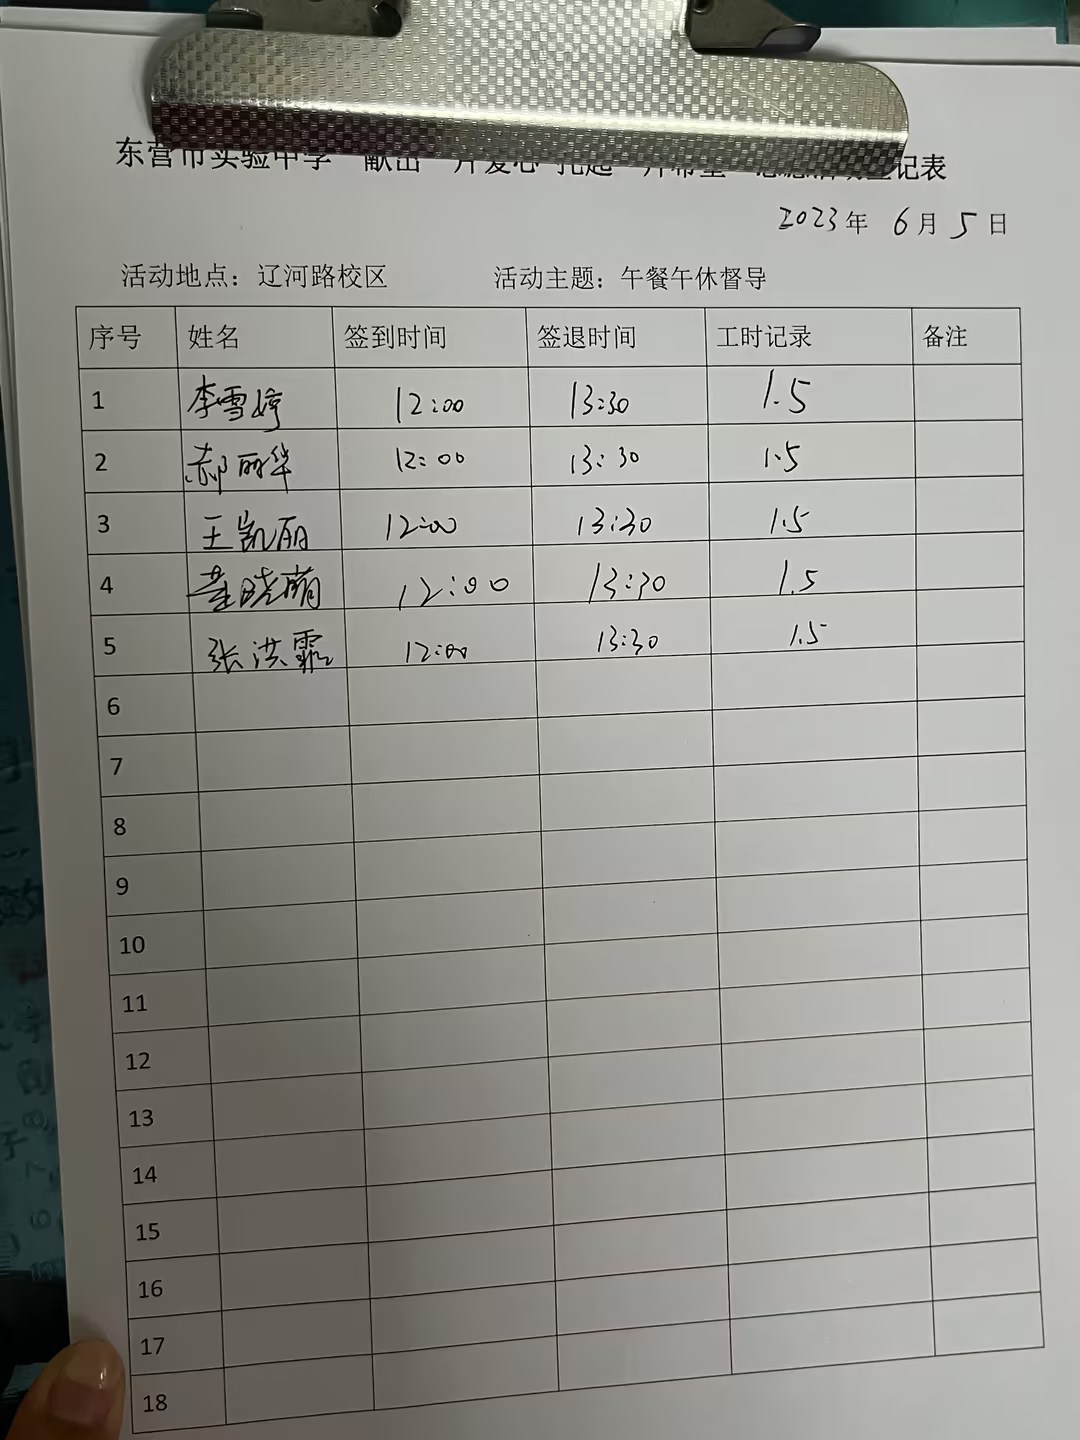 东营市实验中学"献出一片爱心 托起一片希望"志愿活动登记表
2023年 6月 5日
活动地点：辽河路校区 活动主题：午餐午休督导
序号 姓名 签到时间 签退时间 工时记录 备注
1 李雪婷 12:00 13:30 1.5
2 郝丽华 12:00 13:30 1.5
3 王凯丽 12:00 13:30 1.5
4 董晓萌 12:00 13:30 1.5
5 张洪霏 12:00 13:30 1.5
6
7
8
9
10
11
12
13
14
15
16
17
18